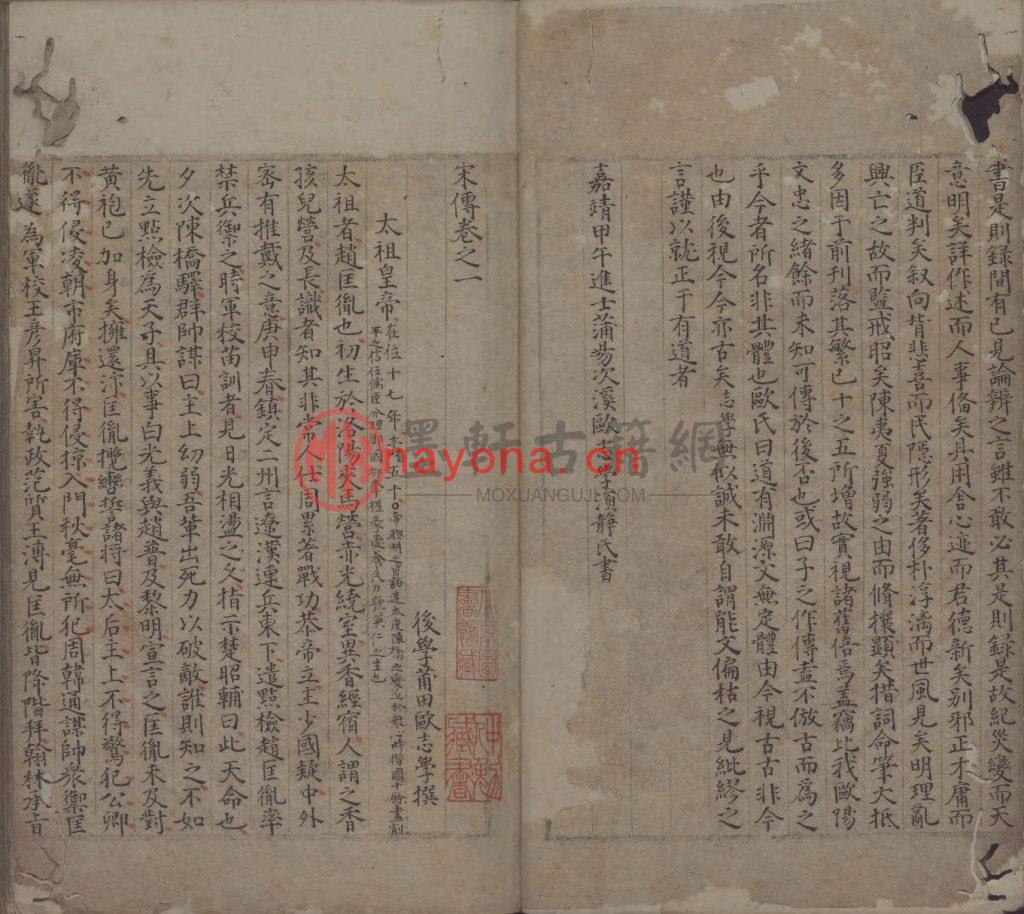 書是則錄間有已見論辨之言雖不敢必其是則錄是故紀災變而天
意明矣詳作述而人事備矣具用舍心迹而君德新矣别邪正才庸而
臣道判矣叙向背悲喜而民隱形矣著侈朴淳漓而世風見矣明理亂
興亡之故而監戒昭矣陳夷夏強弱之由而脩攘顯矣措詞命筆大抵
多因于前刊落其繁已十之五所增故實視諸舊倍焉蓋竊比我歐陽
文忠之緒餘而未知可傳於後否也或曰子之作傳盍不倣古而為之
乎今者所名非其體也歐氏曰道有淵源文無定體由今視古古非今
也由後視今今亦古矣志學無似誠未敢自謂能文偏枯之見紕繆之
言謹以就正于有道者
嘉靖甲午進士蒲場次溪歐志學須靜氏書
宋傳卷之一
後學莆田歐志學撰
太祖皇帝在位十七年
太祖者趙匡胤也初生於洛陽夾馬營赤光繞室異香經宿人謂之香
孩兒營及長識者知其非常人仕周累著戰功恭帝立主少國疑中外
密有推戴之意庚申春鎮定二州言遼漢連兵東下遣點檢趙匡胤率
禁兵禦之時軍校苗訓者見日光相盪之久指示楚昭輔曰此天命也
夕次陳橋驛群帥謀曰主上幼弱吾輩出死力以破敵誰則知之不如
先立點檢為天子具以事白光義與趙普及黎明宣言之匡胤未及對
黃袍已加身矣擁還汴匡胤攬轡誓諸將曰太后主上不得驚犯公卿
不得侵凌朝市府庫不得侵掠入門秋毫無所犯周韓通謀帥衆禦匡
胤遂為軍校王彦昇所害執政范質王溥見匡胤皆降階拜翰林承旨
墨軒古籍網
nayona.cn
MOXUANGUJI.COM